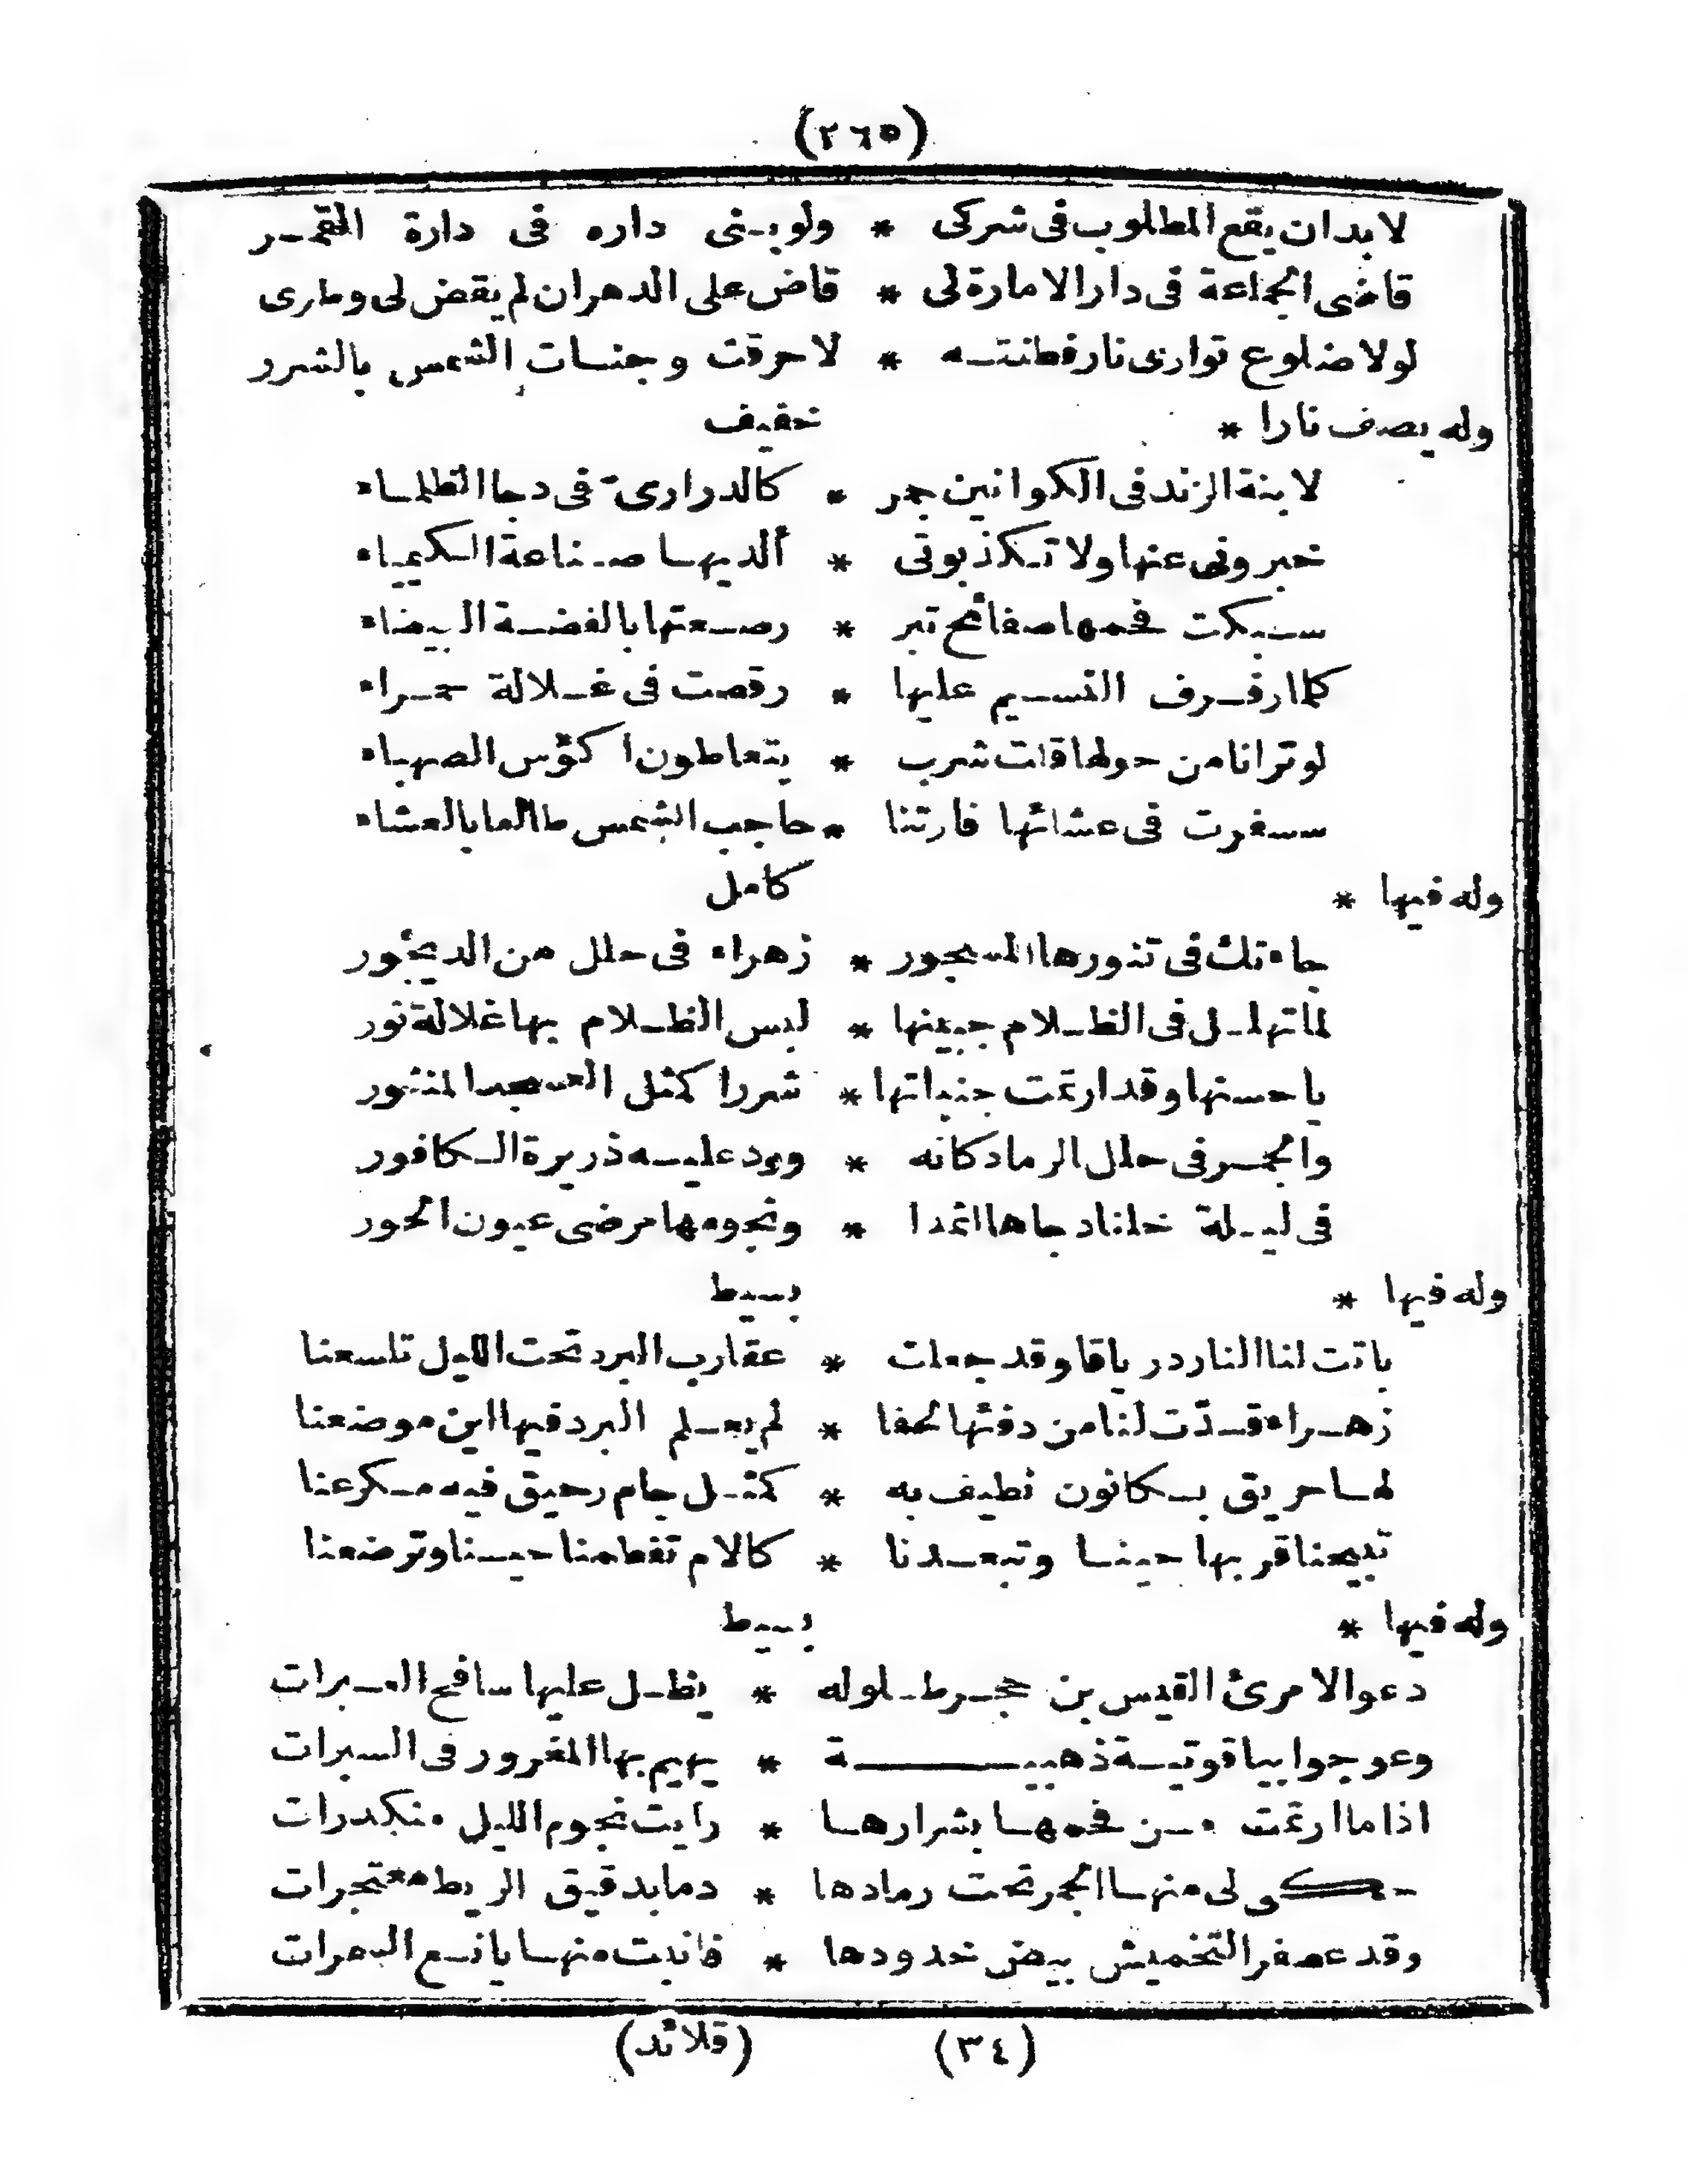 (٢٦٥)
لا بد ان يقع المطلوب فى شركى * ولو بنى داره فى دارة القمر
قاضى الجماعة فى دار الامارة لى * قاض على الدهر ان لم يقض لى وطرى
لولا ضلوع توارى نار فطنته * لاحرقت وجنات الشمس بالشرر
وله يصف نارا * خفيف
لابنة الزند فى الكوانين جمر * كالدرارىّ فى دجا الظلماء
خبرونى عنها ولا تكذبونى * ألديها صناعة الكيمياء
سبكت فحمها صفائح تبر * رصعتها بالفضة البيضاء
كلما رفرف النسيم عليها * رقصت فى غلالة حمراء
لو ترانا من حولها قلت شرب * يتعاطون اكؤس الصهباء
سفرت فى عشائها فارتنا * حاجب الشمس طالعا بالعشاء
وله فيها * كامل
جاءتك فى تنورها المسجور * زهراء فى حلل من الديجور
لما تهلل فى الظلام جبينها * لبس الظلام بها غلالة نور
يا حسنها وقد ارتمت جنباتها * شررا كمثل العسجد المنثور
والجمر فى حلل الرماد كانه * ورد عليه ذريرة الكافور
فى ليلة خلنا دجاها اثمدا * ونجومها مرضى عيون الحور
وله فيها * بسيط
باتت لنا النار درياقا وقد جعلت * عقارب البرد تحت الليل تلسعنا
زهراء قدّت لنا من دفئها لحفا * لم يعلم البرد فيها اين موضعنا
لها حريق بكانون نطيف به * كمثل جام رحيق فيه مكرعنا
تبيحنا قربها حينا وتبعدنا * كالام تفطمنا حينا وترضعنا
وله فيها * بسيط
دعوا لامرئ القيس بن حجر طلوله * يظل عليها سافح العبرات
وعوجوا بياقوتية ذهبية * يهيم بها المقرور فى السبرات
اذا ما ارتمت من فحمها بشرارها * رايت نجوم الليل منكدرات
حكى لى منها الجمر تحت رمادها * دما بدقيق الريط معتجرات
وقد عصفر التخميش بيض خدودها * فانبت منها يانع البهرات
(٣٤) (قلائد)